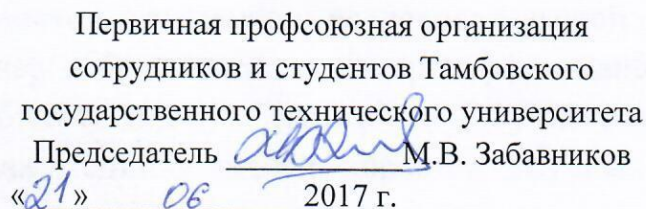 Первичная профсоюзная организация
сотрудников и студентов Тамбовского
государственного технического университета
Председатель М.В. Забавников
«21» 06 2017 г.